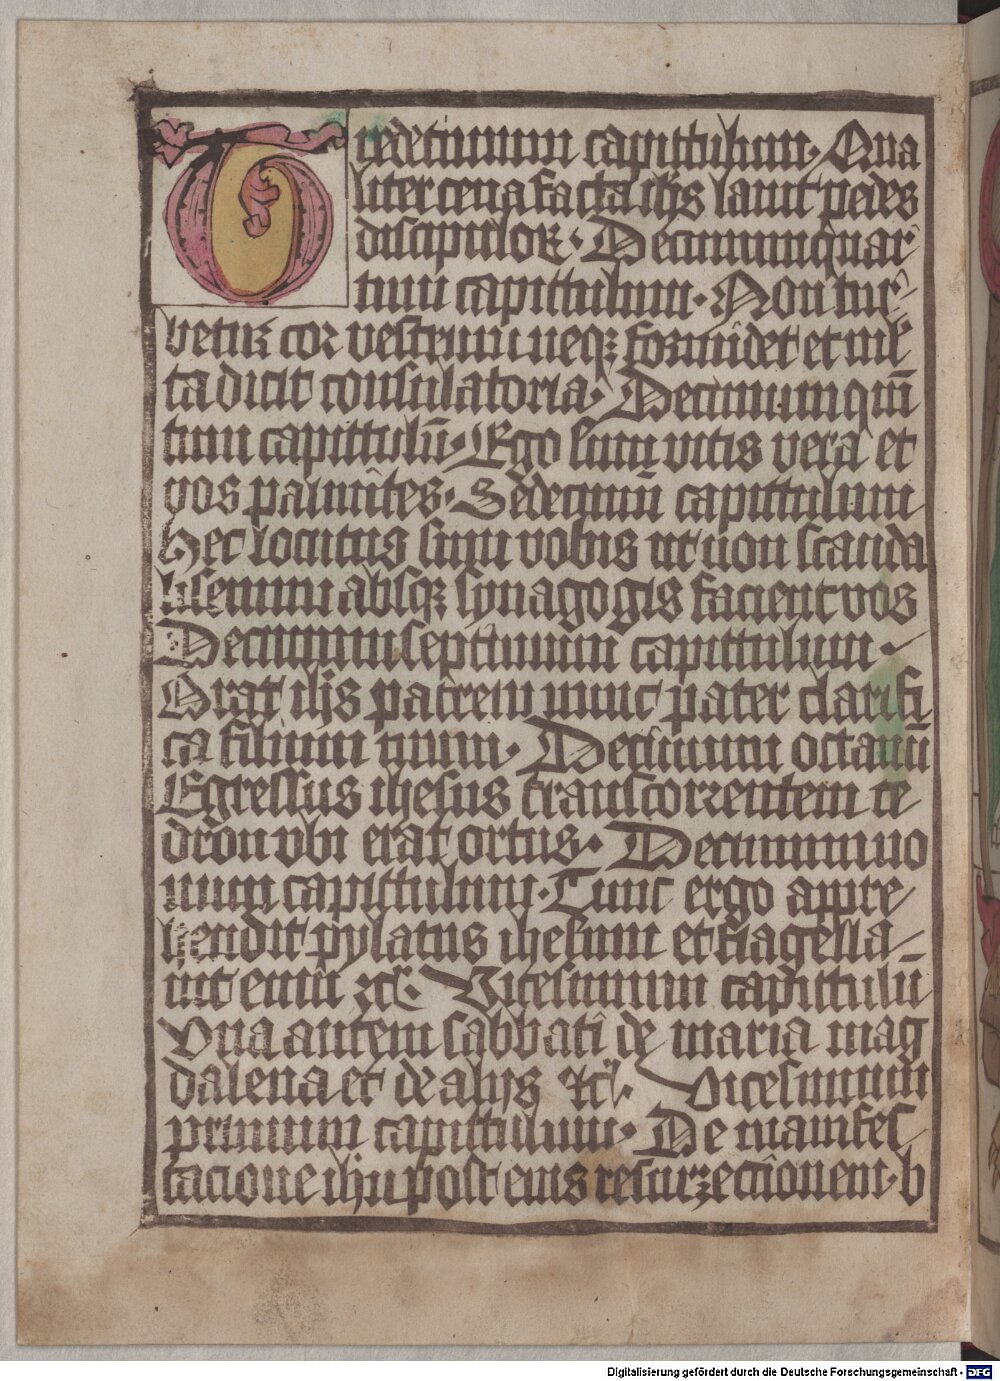 Tredecimum capittulum· Qua
liter cena facta ihs lauit pedes
discipuloꝝ· Decimumquar
tum capittulum· Non tur
betur cor vestrum neqꝫ formidet et mĺ
ta dicit consulatoria· Decimumquī
tum capittulū· Ego sum vitis vera et
vos palmites· Sedecimū capittulum
Hec locutus sum vobis ut non scanda
lisemini absqꝫ synagogis facient vos
Decimumseptimum capittulum·
Orat ihs patrem nunc pater clarifi
ca filium tuum· Decimum octauū
Egressus ihesus transcorrentem ce
dron vbi erat ortus· Decimumno
num capittulum· Tunc ergo appre
hendit pylatus ihesum et flagella
uit eum ꝛc̄· Vicesimum capittulū
Una autem sabbati de maria mag
dalena et de alijs ꝛc̄· Vicesimum
primum capittulum· De manifes
tacione ihu post eius resurrectionem· b
Digitalisierung gefördert durch die Deutsche Forschungsgemeinschaft · DFG